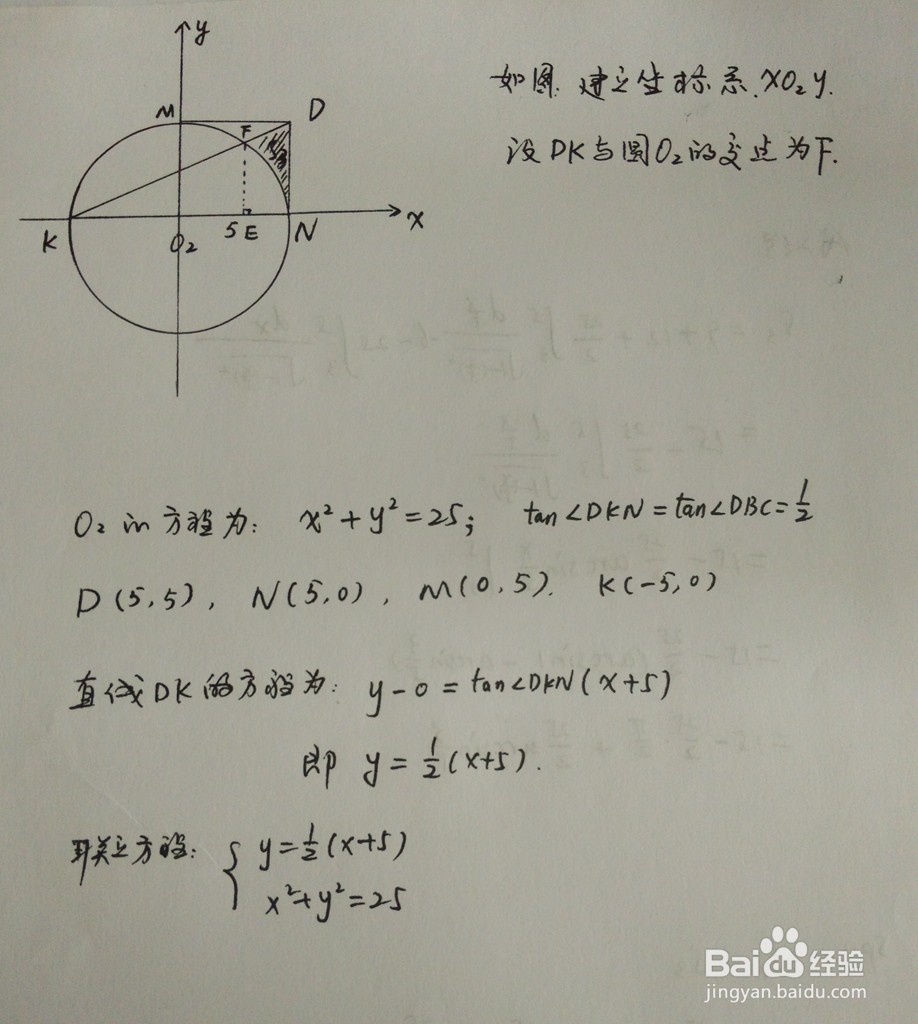 y
M
D
F
K
O₂
5
E
N
x
如图. 建立坐标系. XO₂y.
设DK与圆O₂的交点为F.
O₂的方程为: x²+y²=25; tan∠DKN=tan∠DBC=1/2
D(5,5), N(5,0), M(0,5). K(-5,0)
直线DK的方程为: y-0=tan∠DKN(x+5)
即 y=1/2(x+5).
联立方程: { y=1/2(x+5)
x²+y²=25
Baidu经验
jingyan.baidu.com